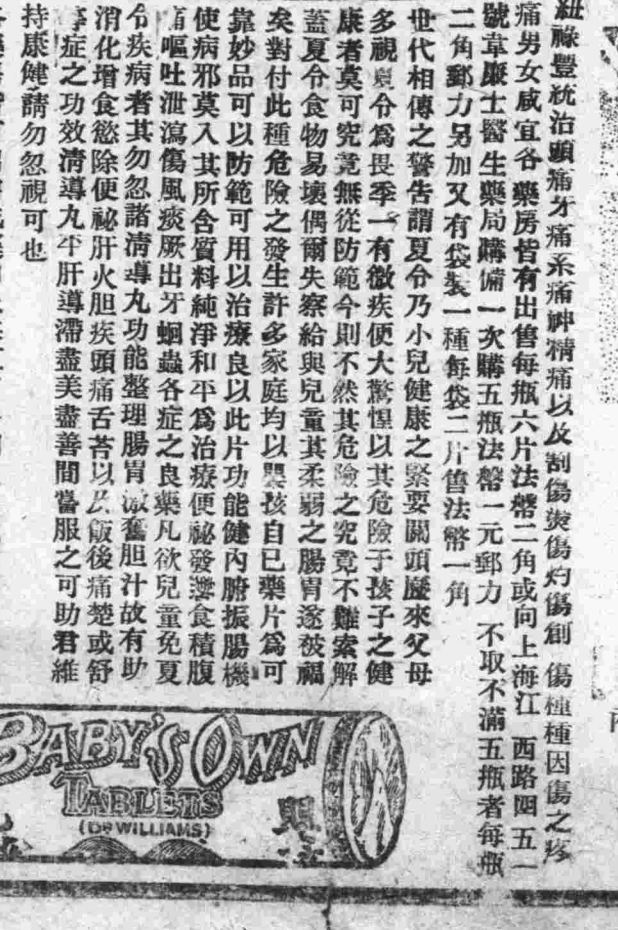 紐祿豐統治頭痛牙痛系痛神精痛以及割傷燙傷灼傷創傷種種因傷之疼
痛男女咸宜各藥房皆有出售每瓶六片法幣二角或向上海江西路四五一
號韋廉士醫生藥局購備一次購五瓶法幣一元郵力不取不滿五瓶者每瓶
二角郵力另加又有袋裝一種每袋二片售法幣一角
世代相傳之警告謂夏令乃小兒健康之緊要關頭歷來父母
多視夏令爲畏季一有微疾便大驚惶以其危險于孩子之健
康者莫可究竟無從防範今則不然其危險之究竟不難索解
蓋夏令食物易壞偶爾失察給與兒童其柔弱之腸胃遂被禍
矣對付此種危險之發生許多家庭均以嬰孩自己藥片爲可
靠妙品可以防範可用以治療良以此片功能健內腑振腸機
使病邪莫入其所含質料純淨和平爲治療便祕發熱食積腹
痛嘔吐泄瀉傷風痰厥出牙蛔蟲各症之良藥凡欲兒童免夏
令疾病者其勿忽諸清導丸功能整理腸胃激奮胆汁故有助
消化增食慾除便祕肝火胆疾頭痛舌苔以及飯後痛楚或舒
症之功效清導丸平肝導滯盡美盡善間嘗服之可助君維
持康健請勿忽視可也
BABY'S OWN
TABLETS
(DR WILLIAMS)